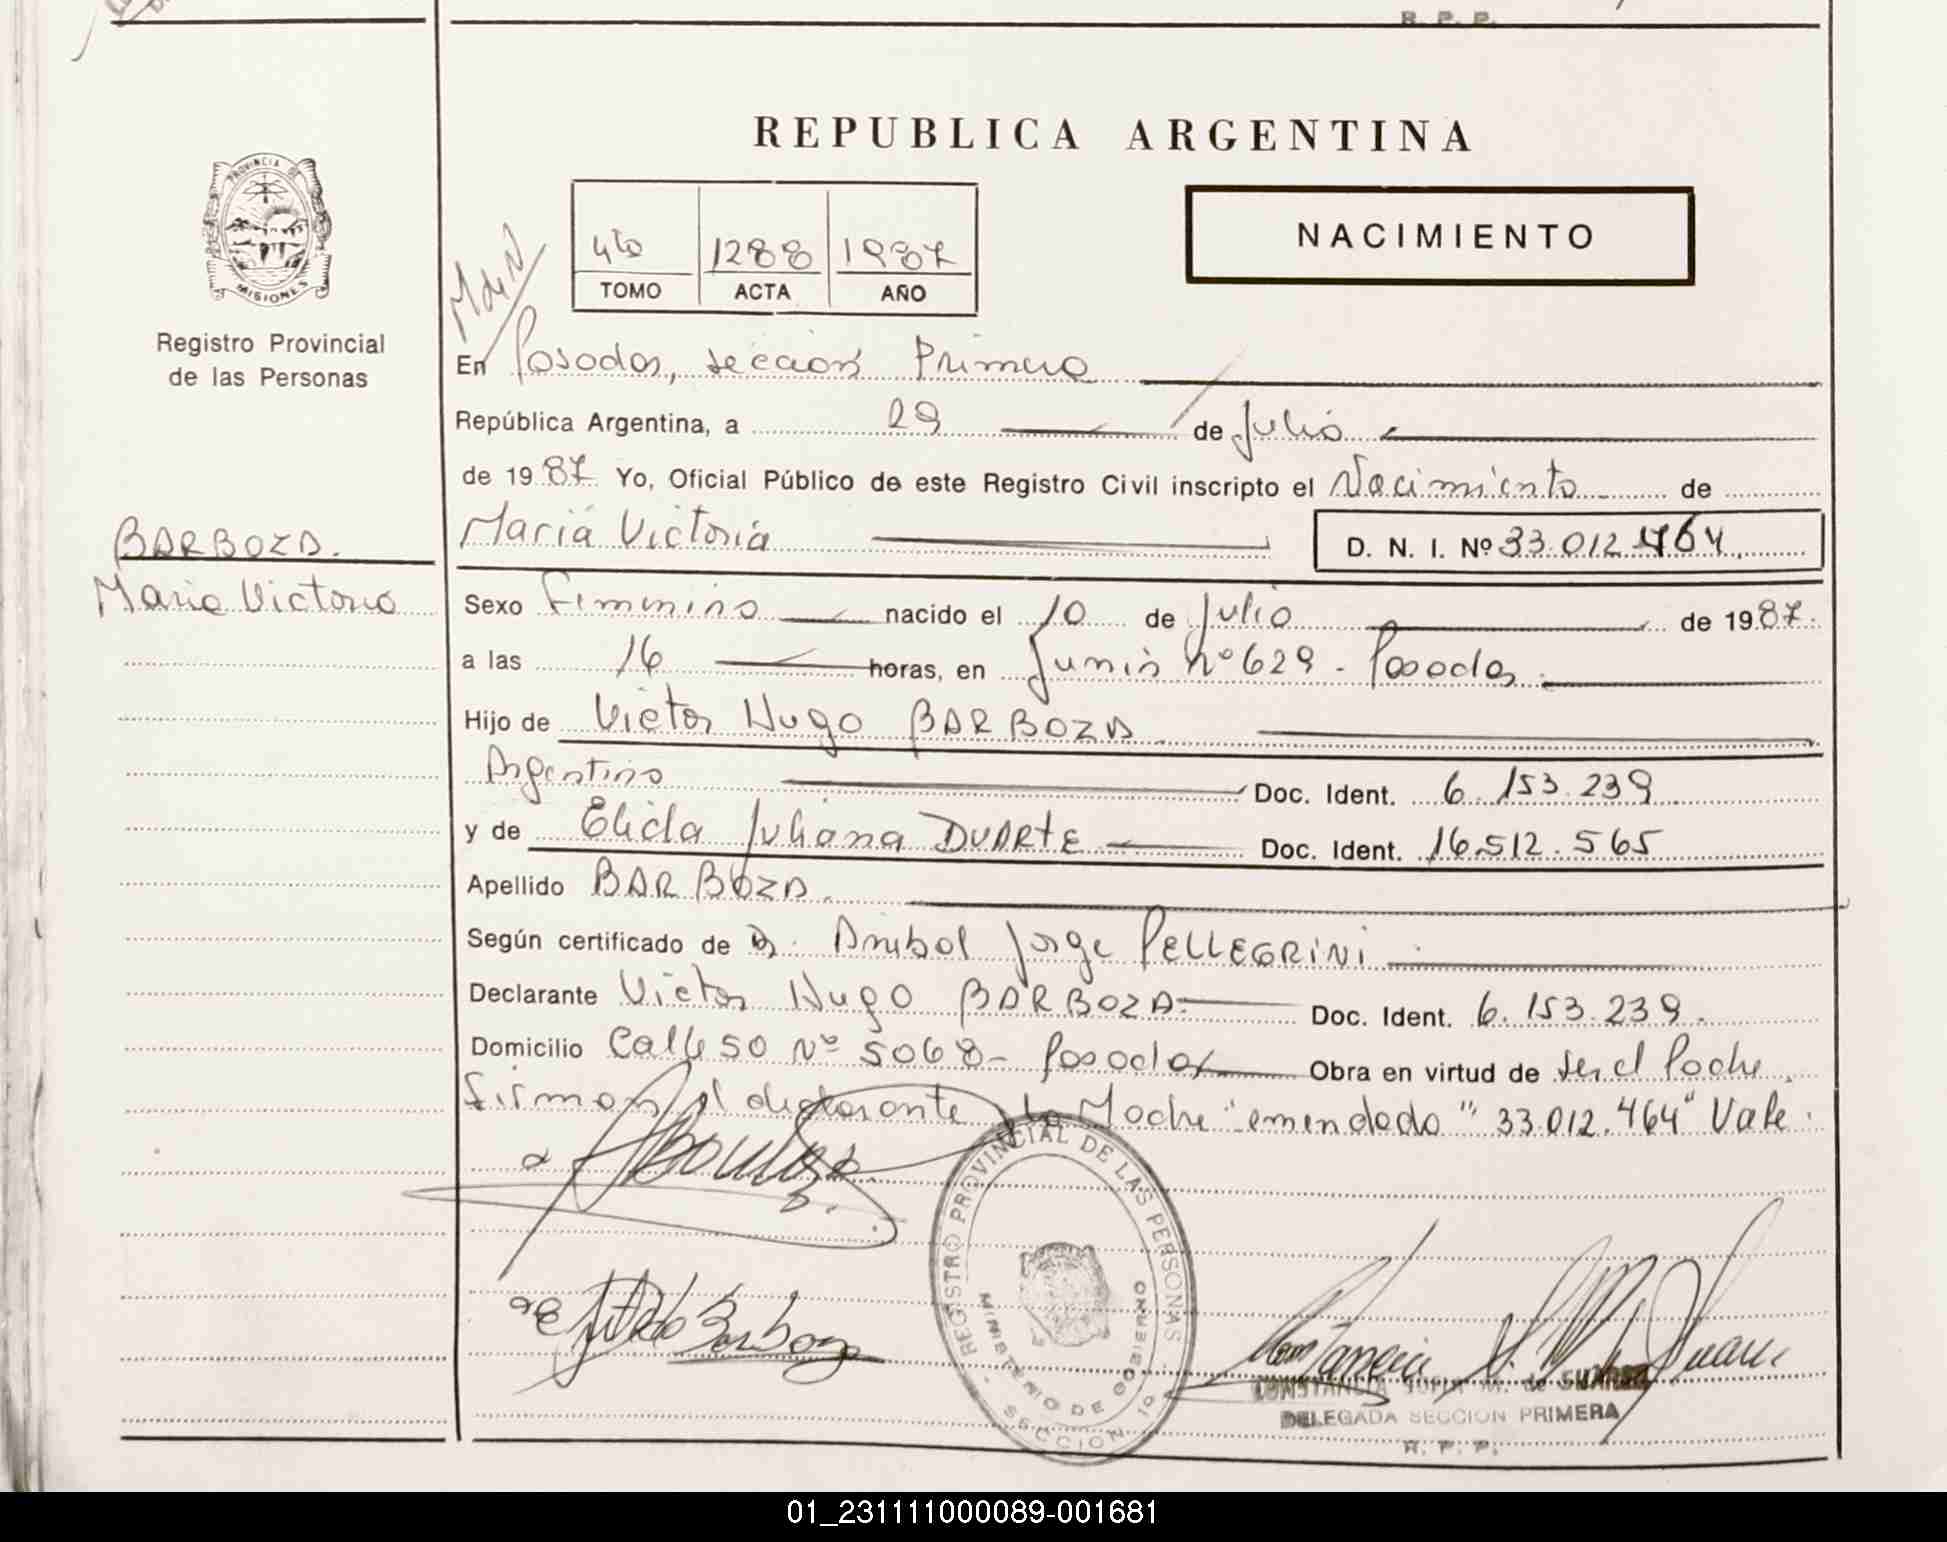 R. P. P.
REPUBLICA ARGENTINA
PROVINCIA DE
MISIONES
Registro Provincial
de las Personas
4to 1288 1987
TOMO ACTA AÑO
NACIMIENTO
En Posadas, sección Primera
República Argentina, a 29 de Julio
de 1987 Yo, Oficial Público de este Registro Civil inscripto el Nacimiento de
BARBOZA.
Maria Victoria
María Victoria D. N. I. Nº 33.012.464.
Sexo Femenino nacido el 10 de Julio de 1987.
a las 16 horas, en Junin Nº 629 - Posadas.
Hijo de Victor Hugo BARBOZA
Argentino Doc. Ident. 6.153.239
y de Elida Juliana DUARTE Doc. Ident. 16.512.565
Apellido BARBOZA.
Según certificado de Dr. Anibal Jorge PELLEGRINI
Declarante Victor Hugo BARBOZA Doc. Ident. 6.153.239.
Domicilio Calle 50 Nº 5068 - Posadas Obra en virtud de ser el Padre.
Firman el declarante y la Madre "emendado" 33.012.464" Vale.
REGISTRO PROVINCIAL DE LAS PERSONAS
MINISTERIO DE GOBIERNO
SECCION 1º
CONSTANCIA SOFIA M. de SUAREZ
DELEGADA SECCION PRIMERA
R. P. P.
01_231111000089-001681